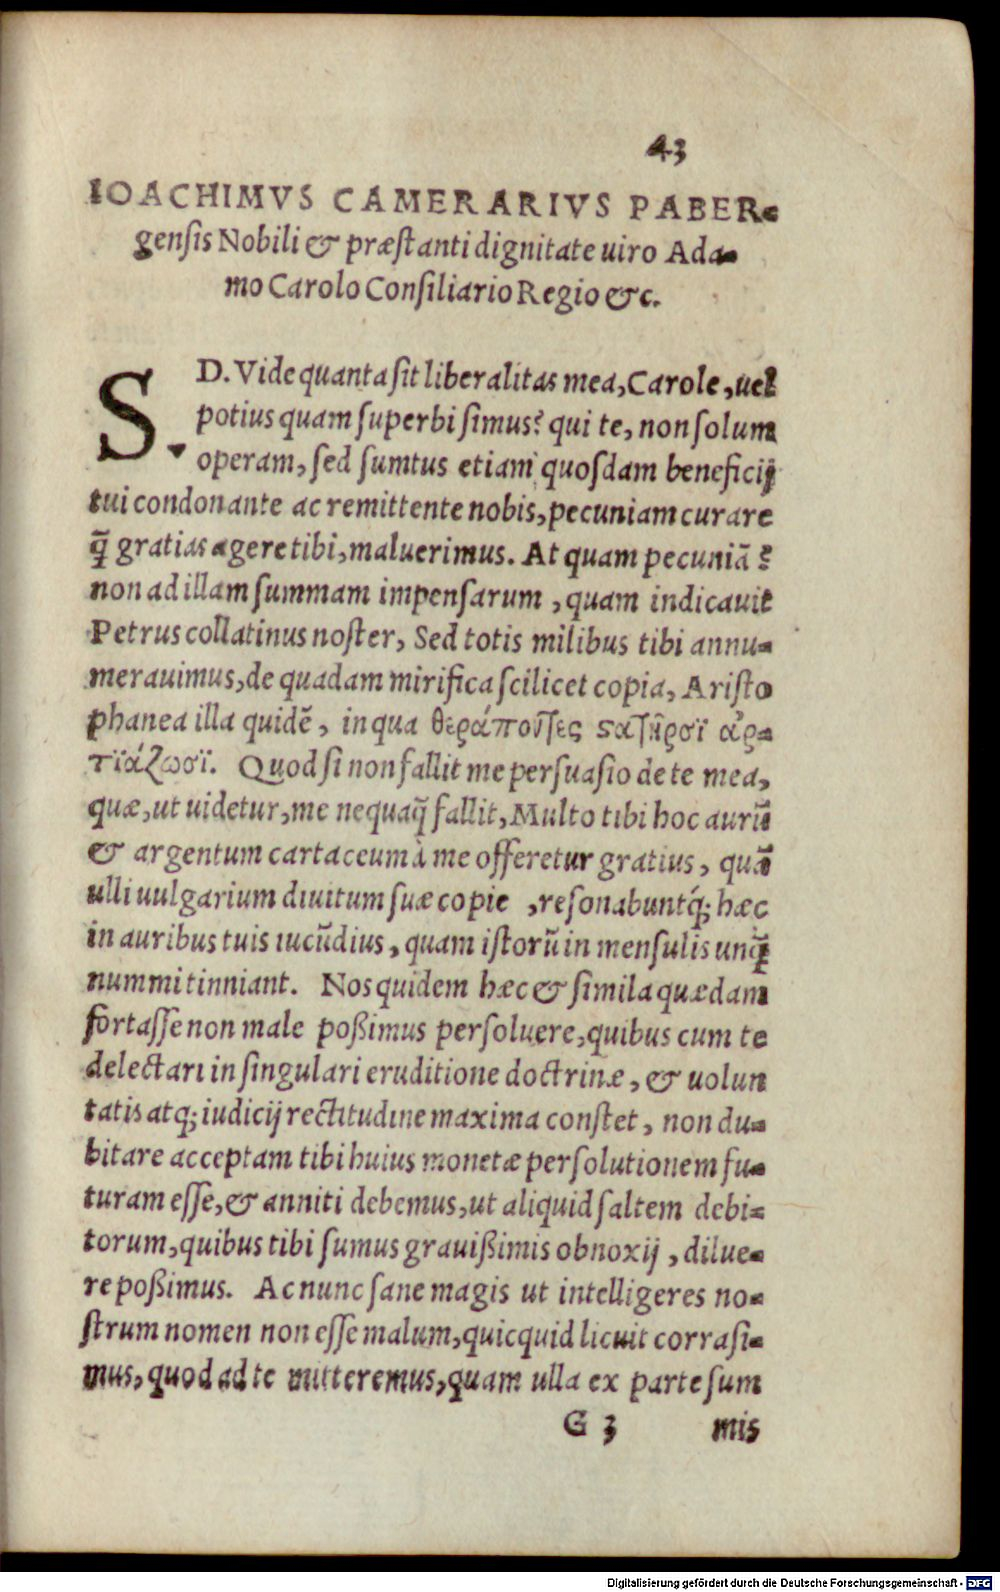 43
IOACHIMVS CAMERARIVS PABER-
gensis Nobili & præstanti dignitate uiro Ada-
mo Carolo Consiliario Regio &c.
S. D. Vide quanta sit liberalitas mea, Carole, uel
potius quam superbi simus? qui te, non solum
operam, sed sumtus etiam quosdam beneficij
tui condonante ac remittente nobis, pecuniam curare
q̃ gratias agere tibi, maluerimus. At quam pecuniã?
non ad illam summam impensarum, quam indicauit
Petrus collatinus noster, Sed totis milibus tibi annu-
merauimus, de quadam mirifica scilicet copia, Aristo
phanea illa quidẽ, in qua θεράποντες στατῆρσϊ ἀρ-
τϊάζωσϊ. Quod si non fallit me persuasio de te mea,
quæ, ut uidetur, me nequaq̃ fallit, Multo tibi hoc aurũ
& argentum cartaceum à me offeretur gratius, quã
ulli uulgarium diuitum suæ copie, resonabuntq́; hæc
in auribus tuis iucũdius, quam istorũ in mensulis unq̃
nummi tinniant. Nos quidem hæc & simila quædam
fortasse non male poßimus persoluere, quibus cum te
delectari in singulari eruditione doctrinæ, & uolun
tatis atq; iudicij rectitudine maxima constet, non du-
bitare acceptam tibi huius monetæ persolutionem fu-
turam esse, & anniti debemus, ut aliquid saltem debi-
torum, quibus tibi sumus grauißimis obnoxij, dilue-
re poßimus. Ac nunc sane magis ut intelligeres no-
strum nomen non esse malum, quicquid licuit corrasi-
mus, quod ad te mitteremus, quam ulla ex parte sum
G 3 mis
Digitalisierung gefördert durch die Deutsche Forschungsgemeinschaft - DFG